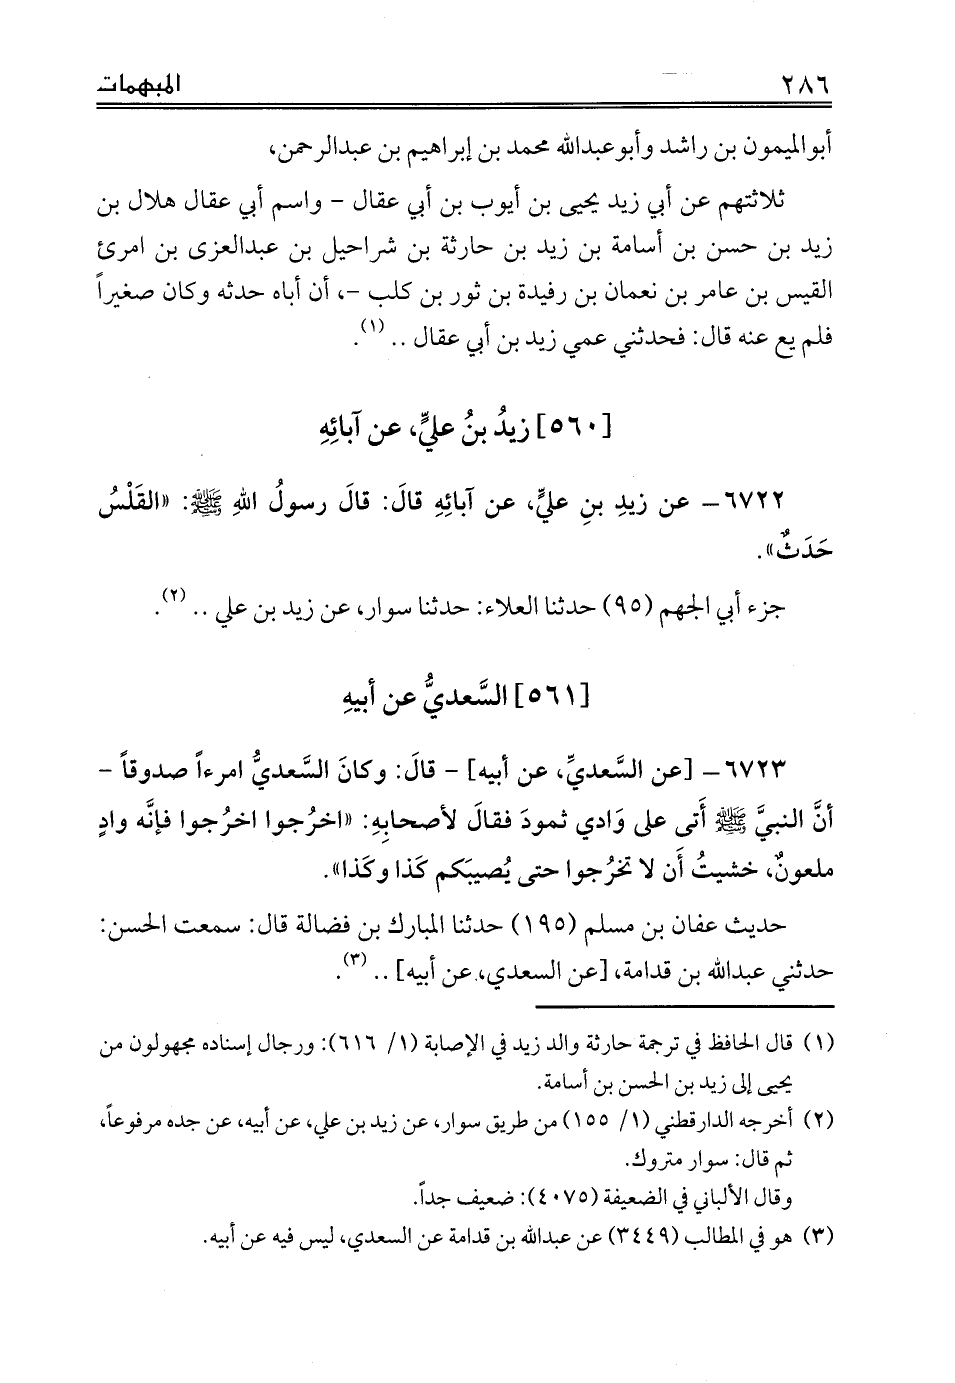 ٢٨٦ المبهمات
أبوالميمون بن راشد وأبوعبدالله محمد بن إبراهيم بن عبدالرحمن،
ثلاثتهم عن أبي زيد يحيى بن أيوب بن أبي عقال – واسم أبي عقال هلال بن
زيد بن حسن بن أسامة بن زيد بن حارثة بن شراحيل بن عبدالعزى بن امرئ
القيس بن عامر بن نعمان بن رفيدة بن ثور بن كلب –، أن أباه حدثه وكان صغيراً
فلم يع عنه قال: فحدثني عمي زيد بن أبي عقال .. (١).
[٥٦٠] زيدُ بنُ عليٍّ، عن آبائِهِ
٦٧٢٢– عن زيدِ بنِ عليٍّ، عن آبائِهِ قالَ: قالَ رسولُ اللهِ ﷺ: «القَلْسُ
حَدَثٌ».
جزء أبي الجهم (٩٥) حدثنا العلاء: حدثنا سوار، عن زيد بن علي .. (٢).
[٥٦١] السَّعديُّ عن أبيهِ
٦٧٢٣– [عن السَّعديِّ، عن أبيه] – قالَ: وكانَ السَّعديُّ امرءاً صدوقاً –
أنَّ النبيَّ ﷺ أَتى على وَادي ثمودَ فقالَ لأصحابِهِ: «اخرُجوا اخرُجوا فإنَّه وادٍ
ملعونٌ، خشيتُ أَن لا تخرُجوا حتى يُصيبَكم كَذا وكَذا».
حديث عفان بن مسلم (١٩٥) حدثنا المبارك بن فضالة قال: سمعت الحسن:
حدثني عبدالله بن قدامة، [عن السعدي، عن أبيه] .. (٣).
(١) قال الحافظ في ترجمة حارثة والد زيد في الإصابة (١/ ٦١٦): ورجال إسناده مجهولون من
يحيى إلى زيد بن الحسن بن أسامة.
(٢) أخرجه الدارقطني (١/ ١٥٥) من طريق سوار، عن زيد بن علي، عن أبيه، عن جده مرفوعاً،
ثم قال: سوار متروك.
وقال الألباني في الضعيفة (٤٠٧٥): ضعيف جداً.
(٣) هو في المطالب (٣٤٤٩) عن عبدالله بن قدامة عن السعدي، ليس فيه عن أبيه.